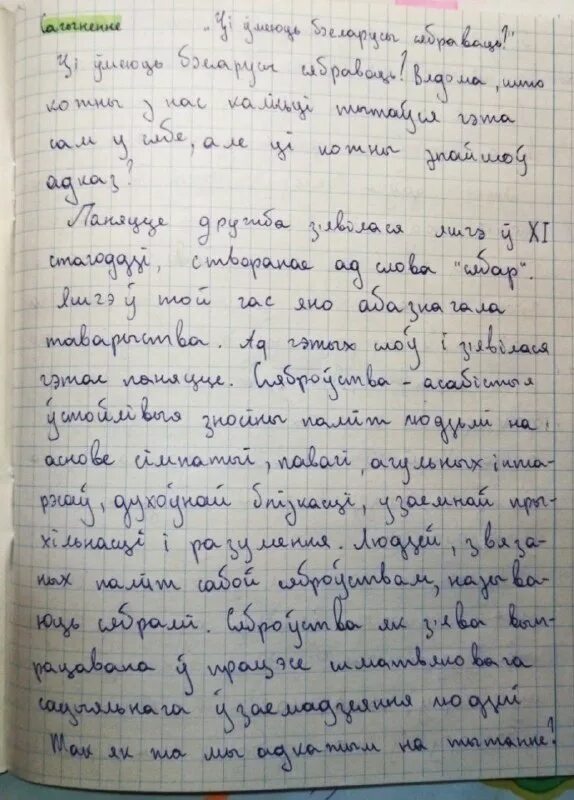 Сачыненне „Ці ўмеюць бэларусы сябраваць?"
Ці ўмеюць бэларусы сябраваць? Вядома, што
кожны з нас калісьці пытаўся гэта
сам у сябе, але ці кожны знайшоў
адказ?
Паняцце дружба з'явілася яшчэ ў XI
стагоддзі, створанае ад слова "сябар".
Яшчэ ў той час яно абазначала
таварыства. Ад гэтых слоў і з'явілася
гэтае паняцце. Сяброўства - асабістыя
ўстойлівыя зносіны паміж людзьмі на
аснове сімпатый, павагі, агульных інта-
рэсаў, духоўнай блізкасці, узаемнай пры-
хільнасці і разумення. Людзей, звяза-
ных паміж сабой сяброўствам, называ-
юць сябрамі. Сяброўства як з'ява вып-
рацавала ў працэсе шматвяковага
сацыяльнага ўзаемадзеяння людзей
Так як та мы адкажым на пытанне?